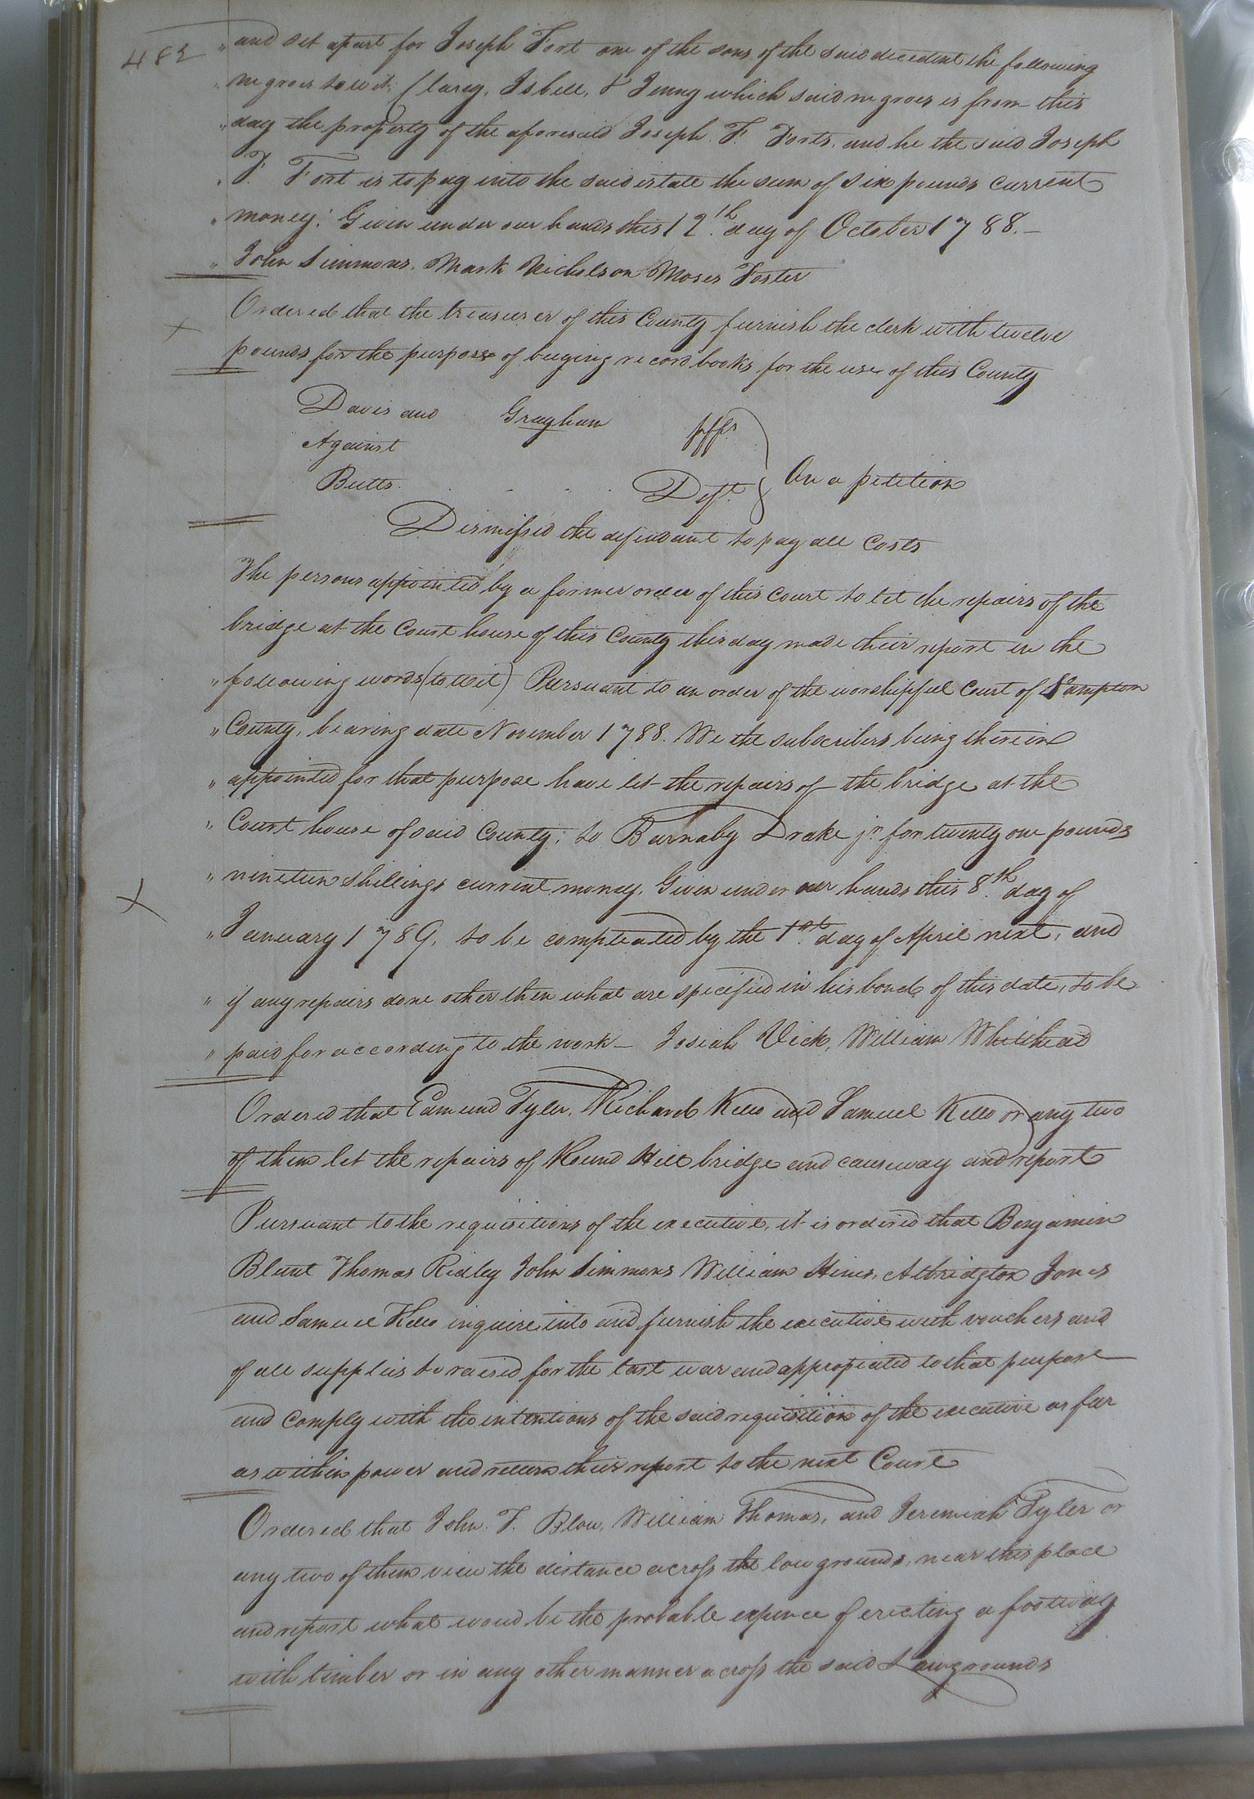 482
" and set apart for Joseph Fort one of the sons of the said decedent the following
" negroes to wit, Clarey, Isbell, & Jenny which said negroes is from this
" day the property of the aforesaid Joseph F. Forts, and he the said Joseph
" F. Fort is to pay into the said estate the sum of six pounds current
" money: Given under our hands this 12th. day of October 1788.—
" John Simmons, Mark Nicholson Moses Foster
Ordered that the treasurer of this County furnish the clerk with twelve
pounds for the purpose of buying record books for the use of this County
Davis and Grayham pffs
Against
Butts. Deft. } On a petition
Dismissed the defendant to pay all costs
The persons appointed by a former order of this court to let the repairs of the
bridge at the Court house of this County this day made their report in the
" following words (to wit) Pursuant to an order of the worshipful Court of Sampton
" County, bearing date November 1788. We the subscribers being therein
" appointed for that purpose have let the repairs of the bridge at the
" Court house of said County; to Barnaby Drake jr. for twenty one pounds
" nineteen shillings current money. Given under our hands this 8th. day of
" January 1789, to be compleated by the 1st. day of April next, and
" if any repairs done other then what are specified in his bond of this date, to be
" paid for according to the work — Josiah Vick, William Whitehead
Ordered that Edmund Tyler, Richard Kello and Samuel Kello or any two
of them let the repairs of Round Hill bridge and causeway and report
Pursuant to the requisitions of the executive, it is ordered that Benjamin
Blunt Thomas Ridley John Simmons William Hines, Albridgton Jones
and Samuel Kello inquire into and furnish the executive with vouchers and
of all supplies to raised for the last war and appropiated to that purpose
and comply with the intentions of the said requisition of the executive as far
as within power and return their report to the next Court
Ordered that John T. Blow, William Thomas, and Jeremiah Tyler or
any two of them view the distance across the low grounds, near this place
and report what would be the probable expence of erecting a footway
with timber or in any other manner across the said Lowgrounds